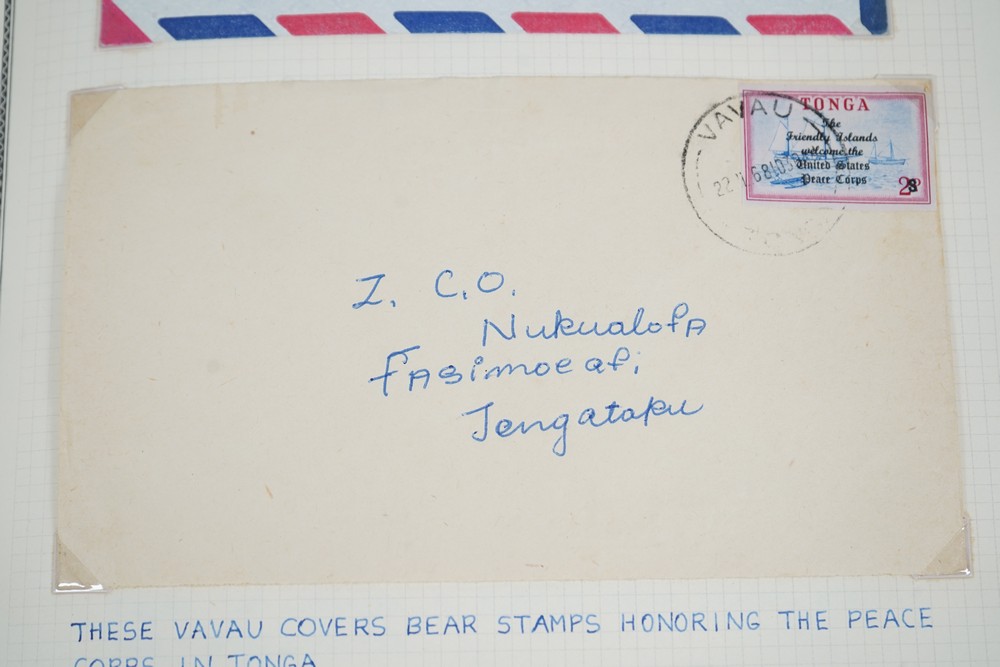 VAVAU
22 68 1030
TONGA
The
Friendly Islands
welcome the
United States
Peace Corps
2s
I. C.O.
Nukualofa
Fasimoeafi
Tongatapu
THESE VAVAU COVERS BEAR STAMPS HONORING THE PEACE
CORPS IN TONGA